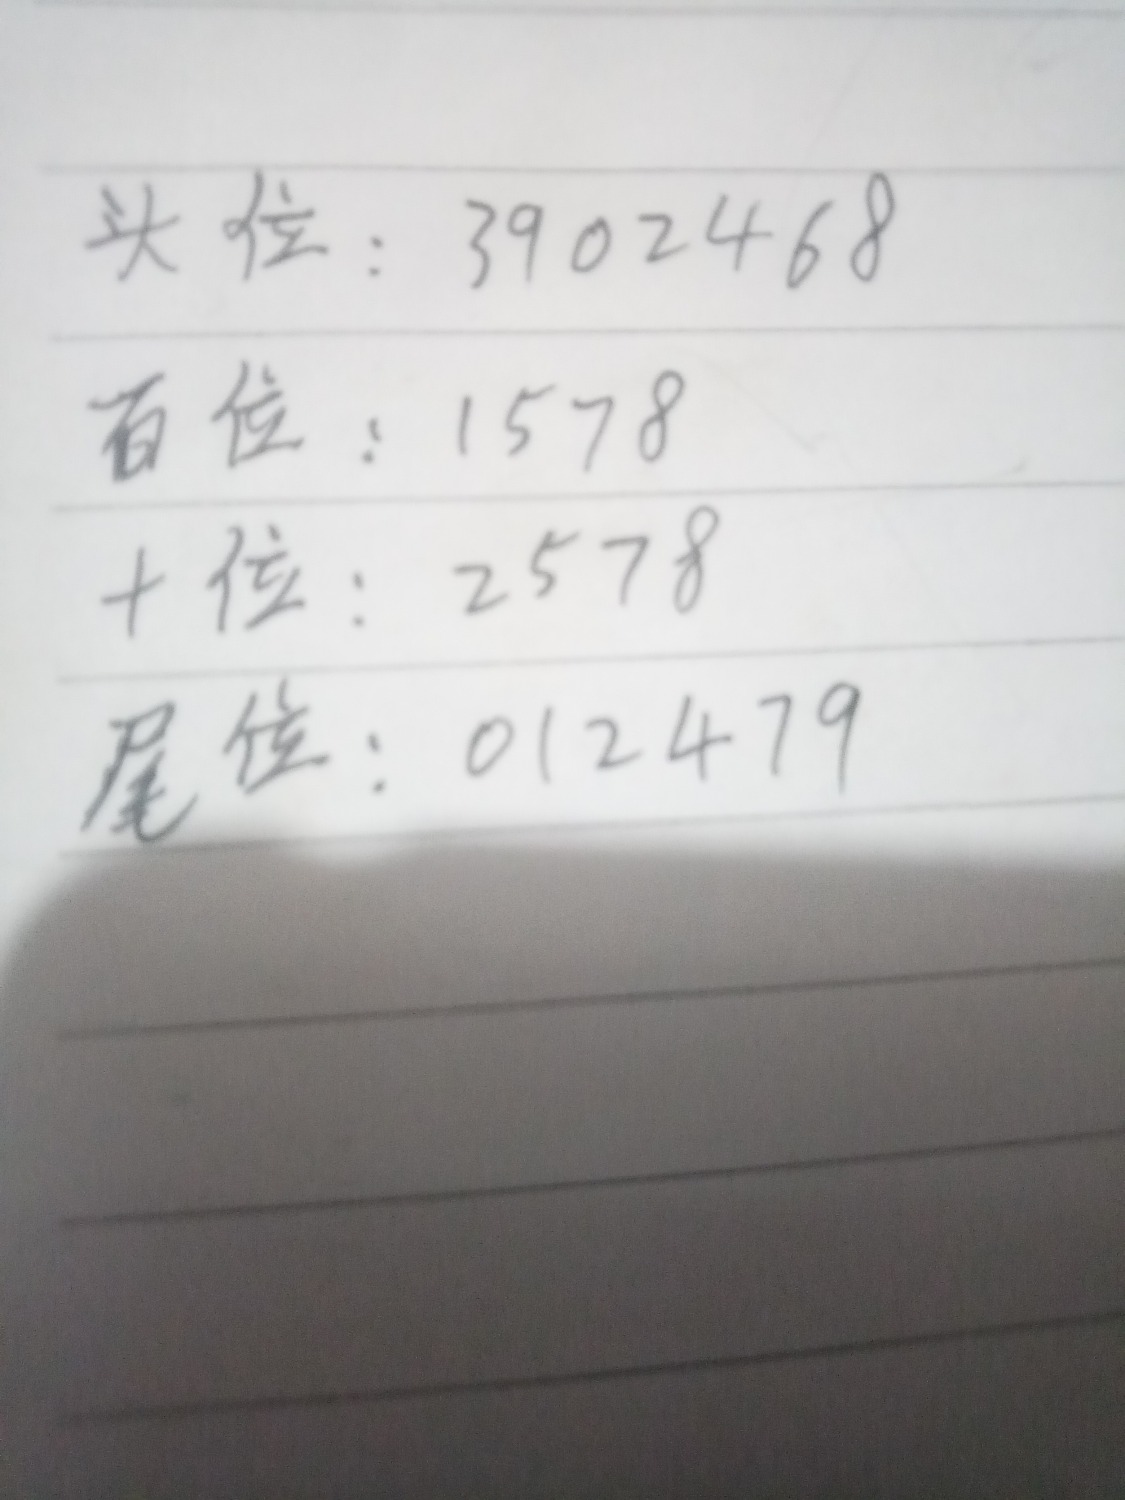 头位：3902468
百位：1578
十位：2578
尾位：012479